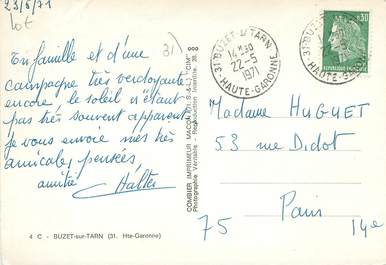 23/5/71
Lot
31)
En famille et d'une
campagne très verdoyante
encore, le soleil n'étant
pas très souvent apparent
je vous envoie mes très
amicales pensées
amitié
4 C - BUZET-sur-TARN (31. Hte-Garonne)
COMBIER IMPRIMEUR MACON (ET S.-&-L.) "CIM"
Photographie Véritable - Reproduction Interdite
31 BUZET-S-TARN
14H30
22-5
1971
HAUTE-GARONNE
31 BUZET-
HAUTE-GA
0,30
REPUBLIQUE FRANÇAISE
Madame HUGUET
53 rue Didot
Paris
75 14e